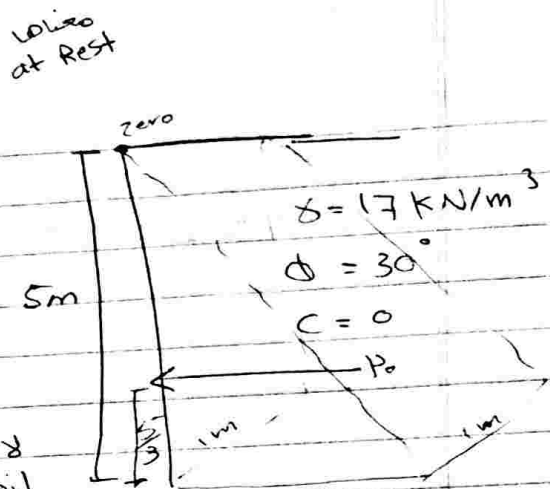 at Rest
zero
γ = 17 KN/m³
5m
ϕ = 30°
C = 0
P₀
5/3
1m
1m
γ